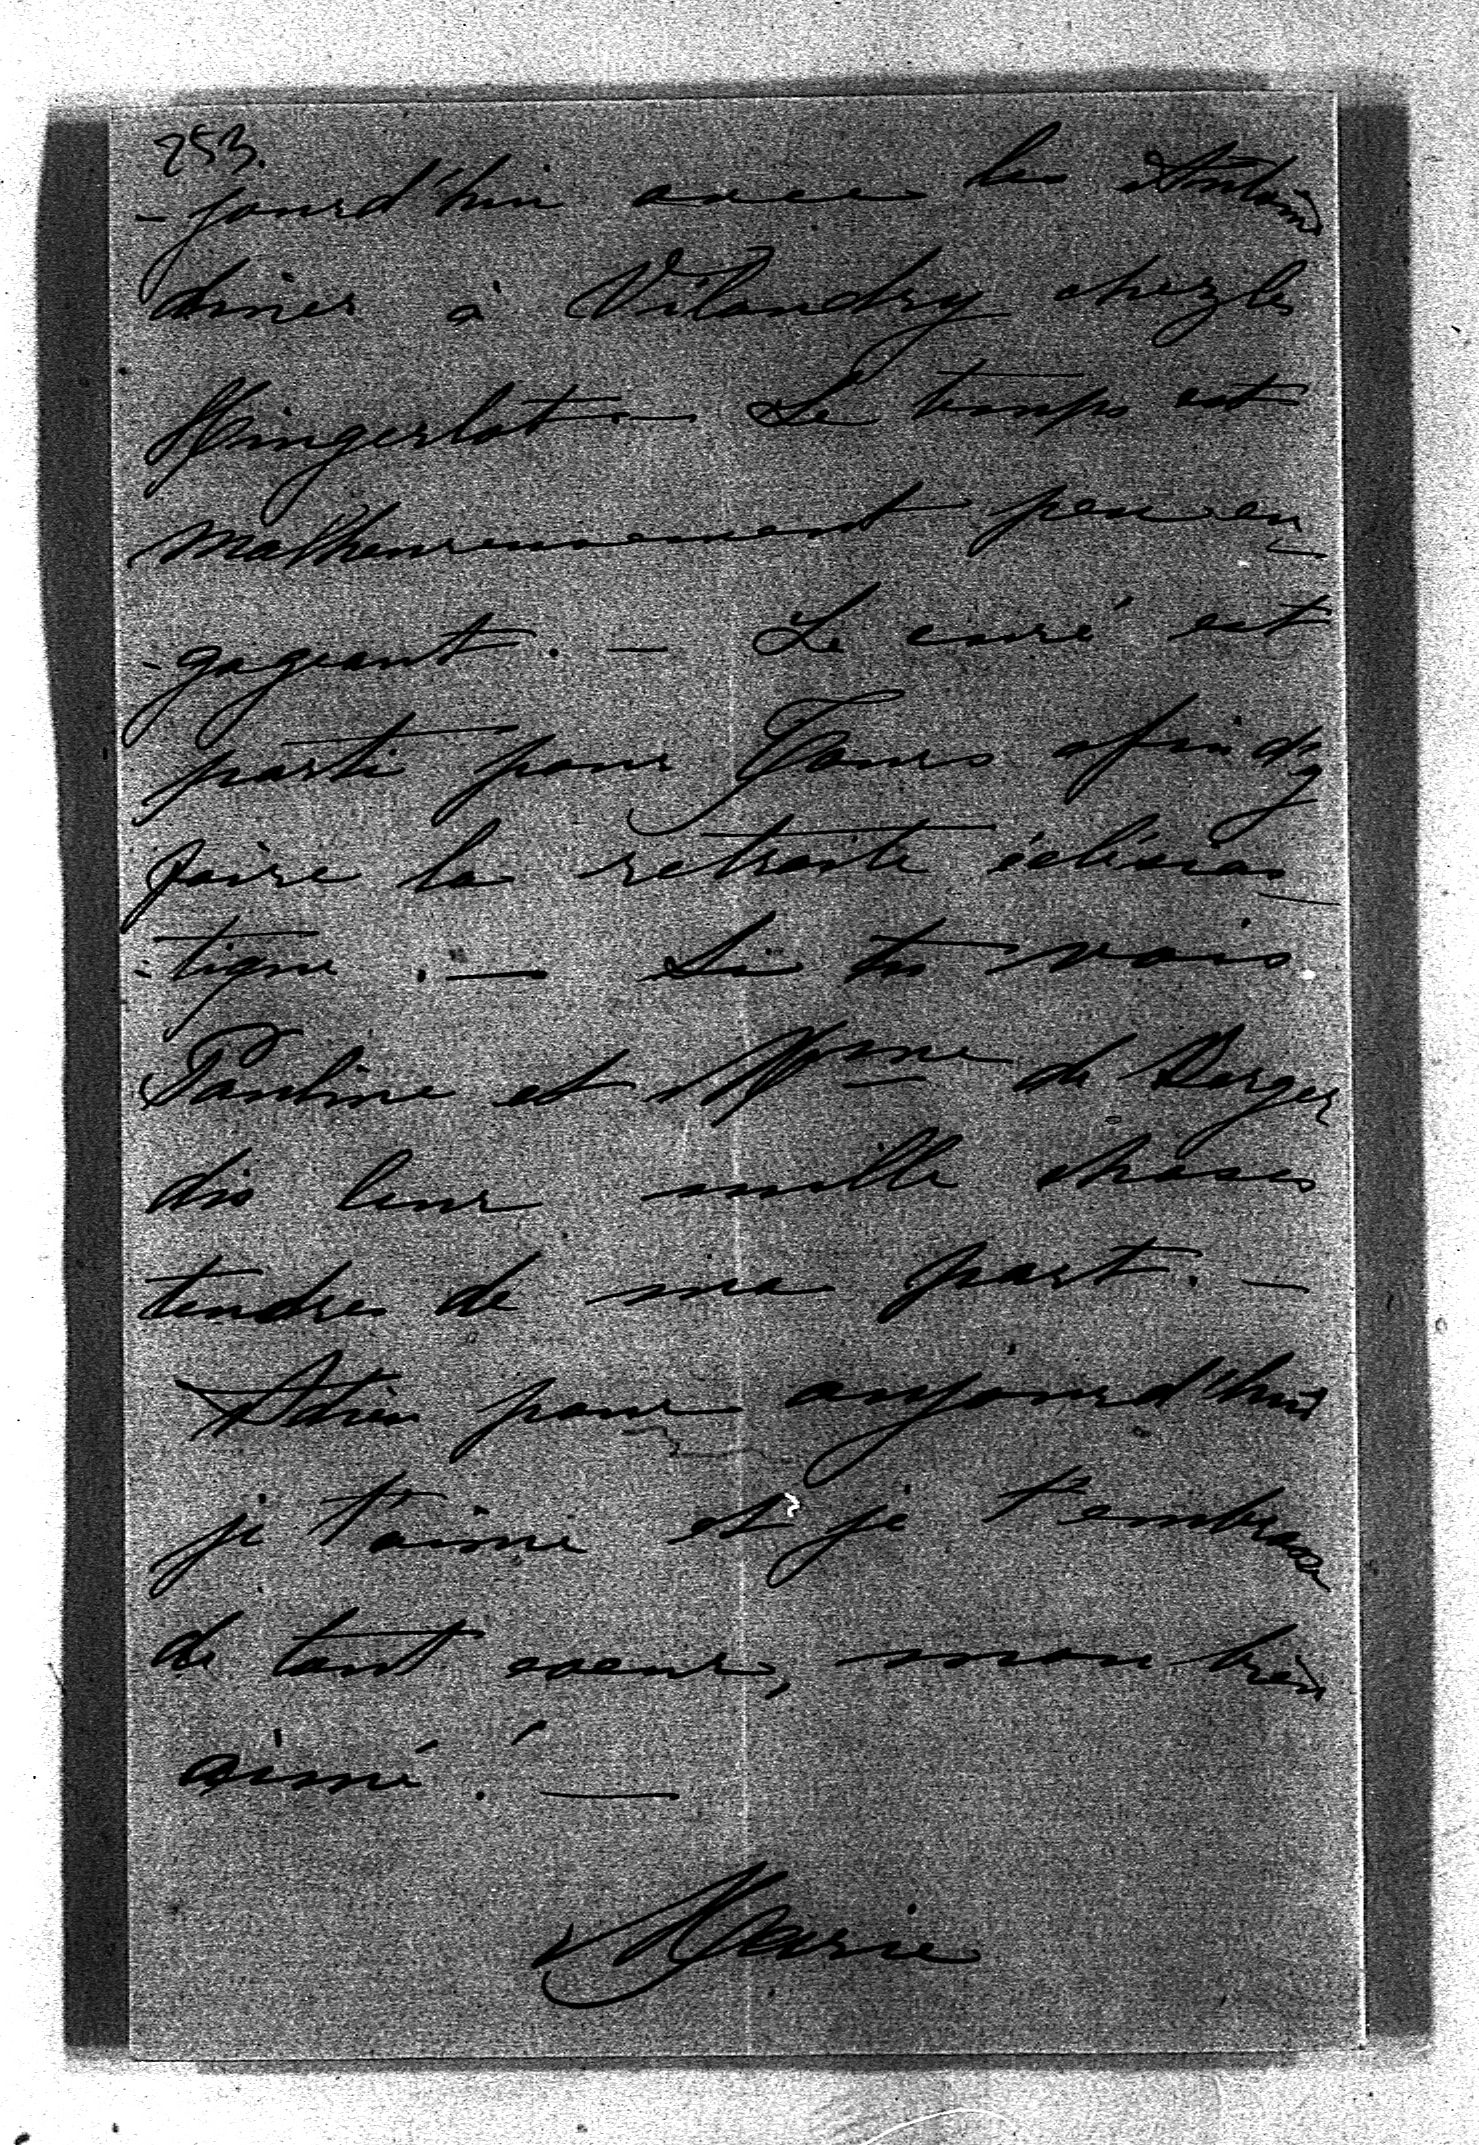 253.
-jourd'hui avec les Antoine
diner à Vilandry chez les
Hingerlot. — Le temps est
malheureusement peu en-
-gageant. — Le curé est
parti pour Tours afin de
faire la retraite éclésias-
-tique. — Si tu vois
Pauline et Mme de Berger
dis leur mille choses
tendres de ma part. —
Adieu pour aujourd'hui
je t'aime et je t'embrasse
de tout coeur, mon bien
aimé! —
Marie